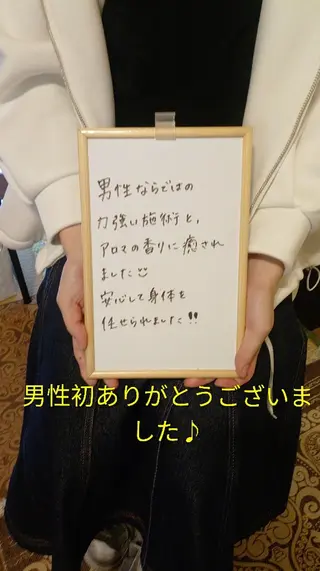 男性ならではの
力強い施術と、
アロマの香りに癒され
ました
安心して身体を
任せられました!!
男性初ありがとうございま
した♪